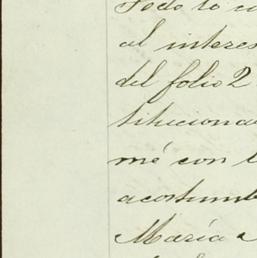 Todo lo
al interes
del folio 2
titucional
mé con l
acostumb
María